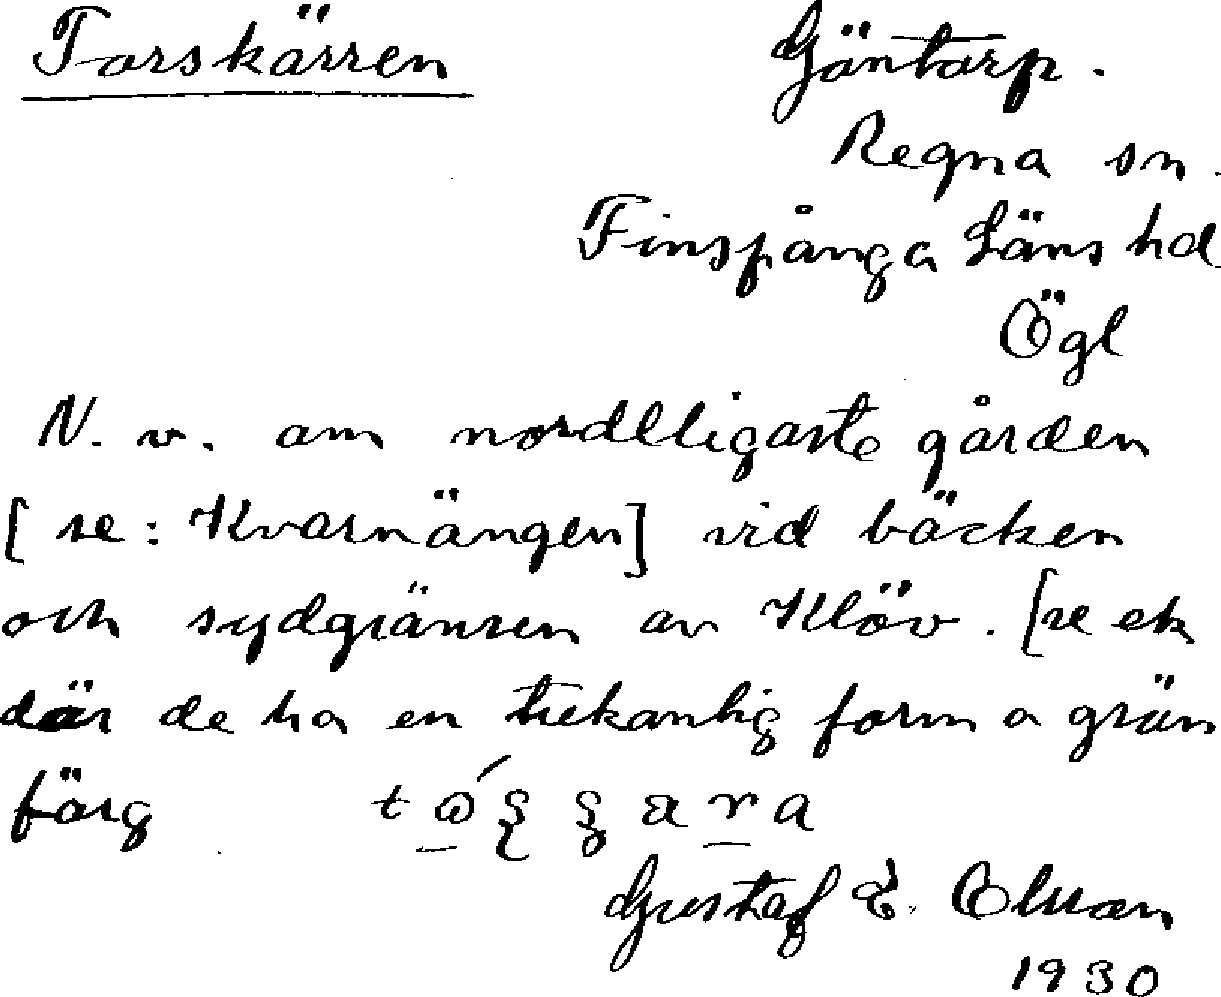 Torskärren
Göntorp.
Regna sn.
Finspånga Läns hd
Ögl
N. v. om nordlligaste gården
[se: Kvarnängen] vid bäcken
och sydgränsen av Klöv. [se ek
där de ha en trekantig form o grön
färg
Gustaf E. Olsson
1930